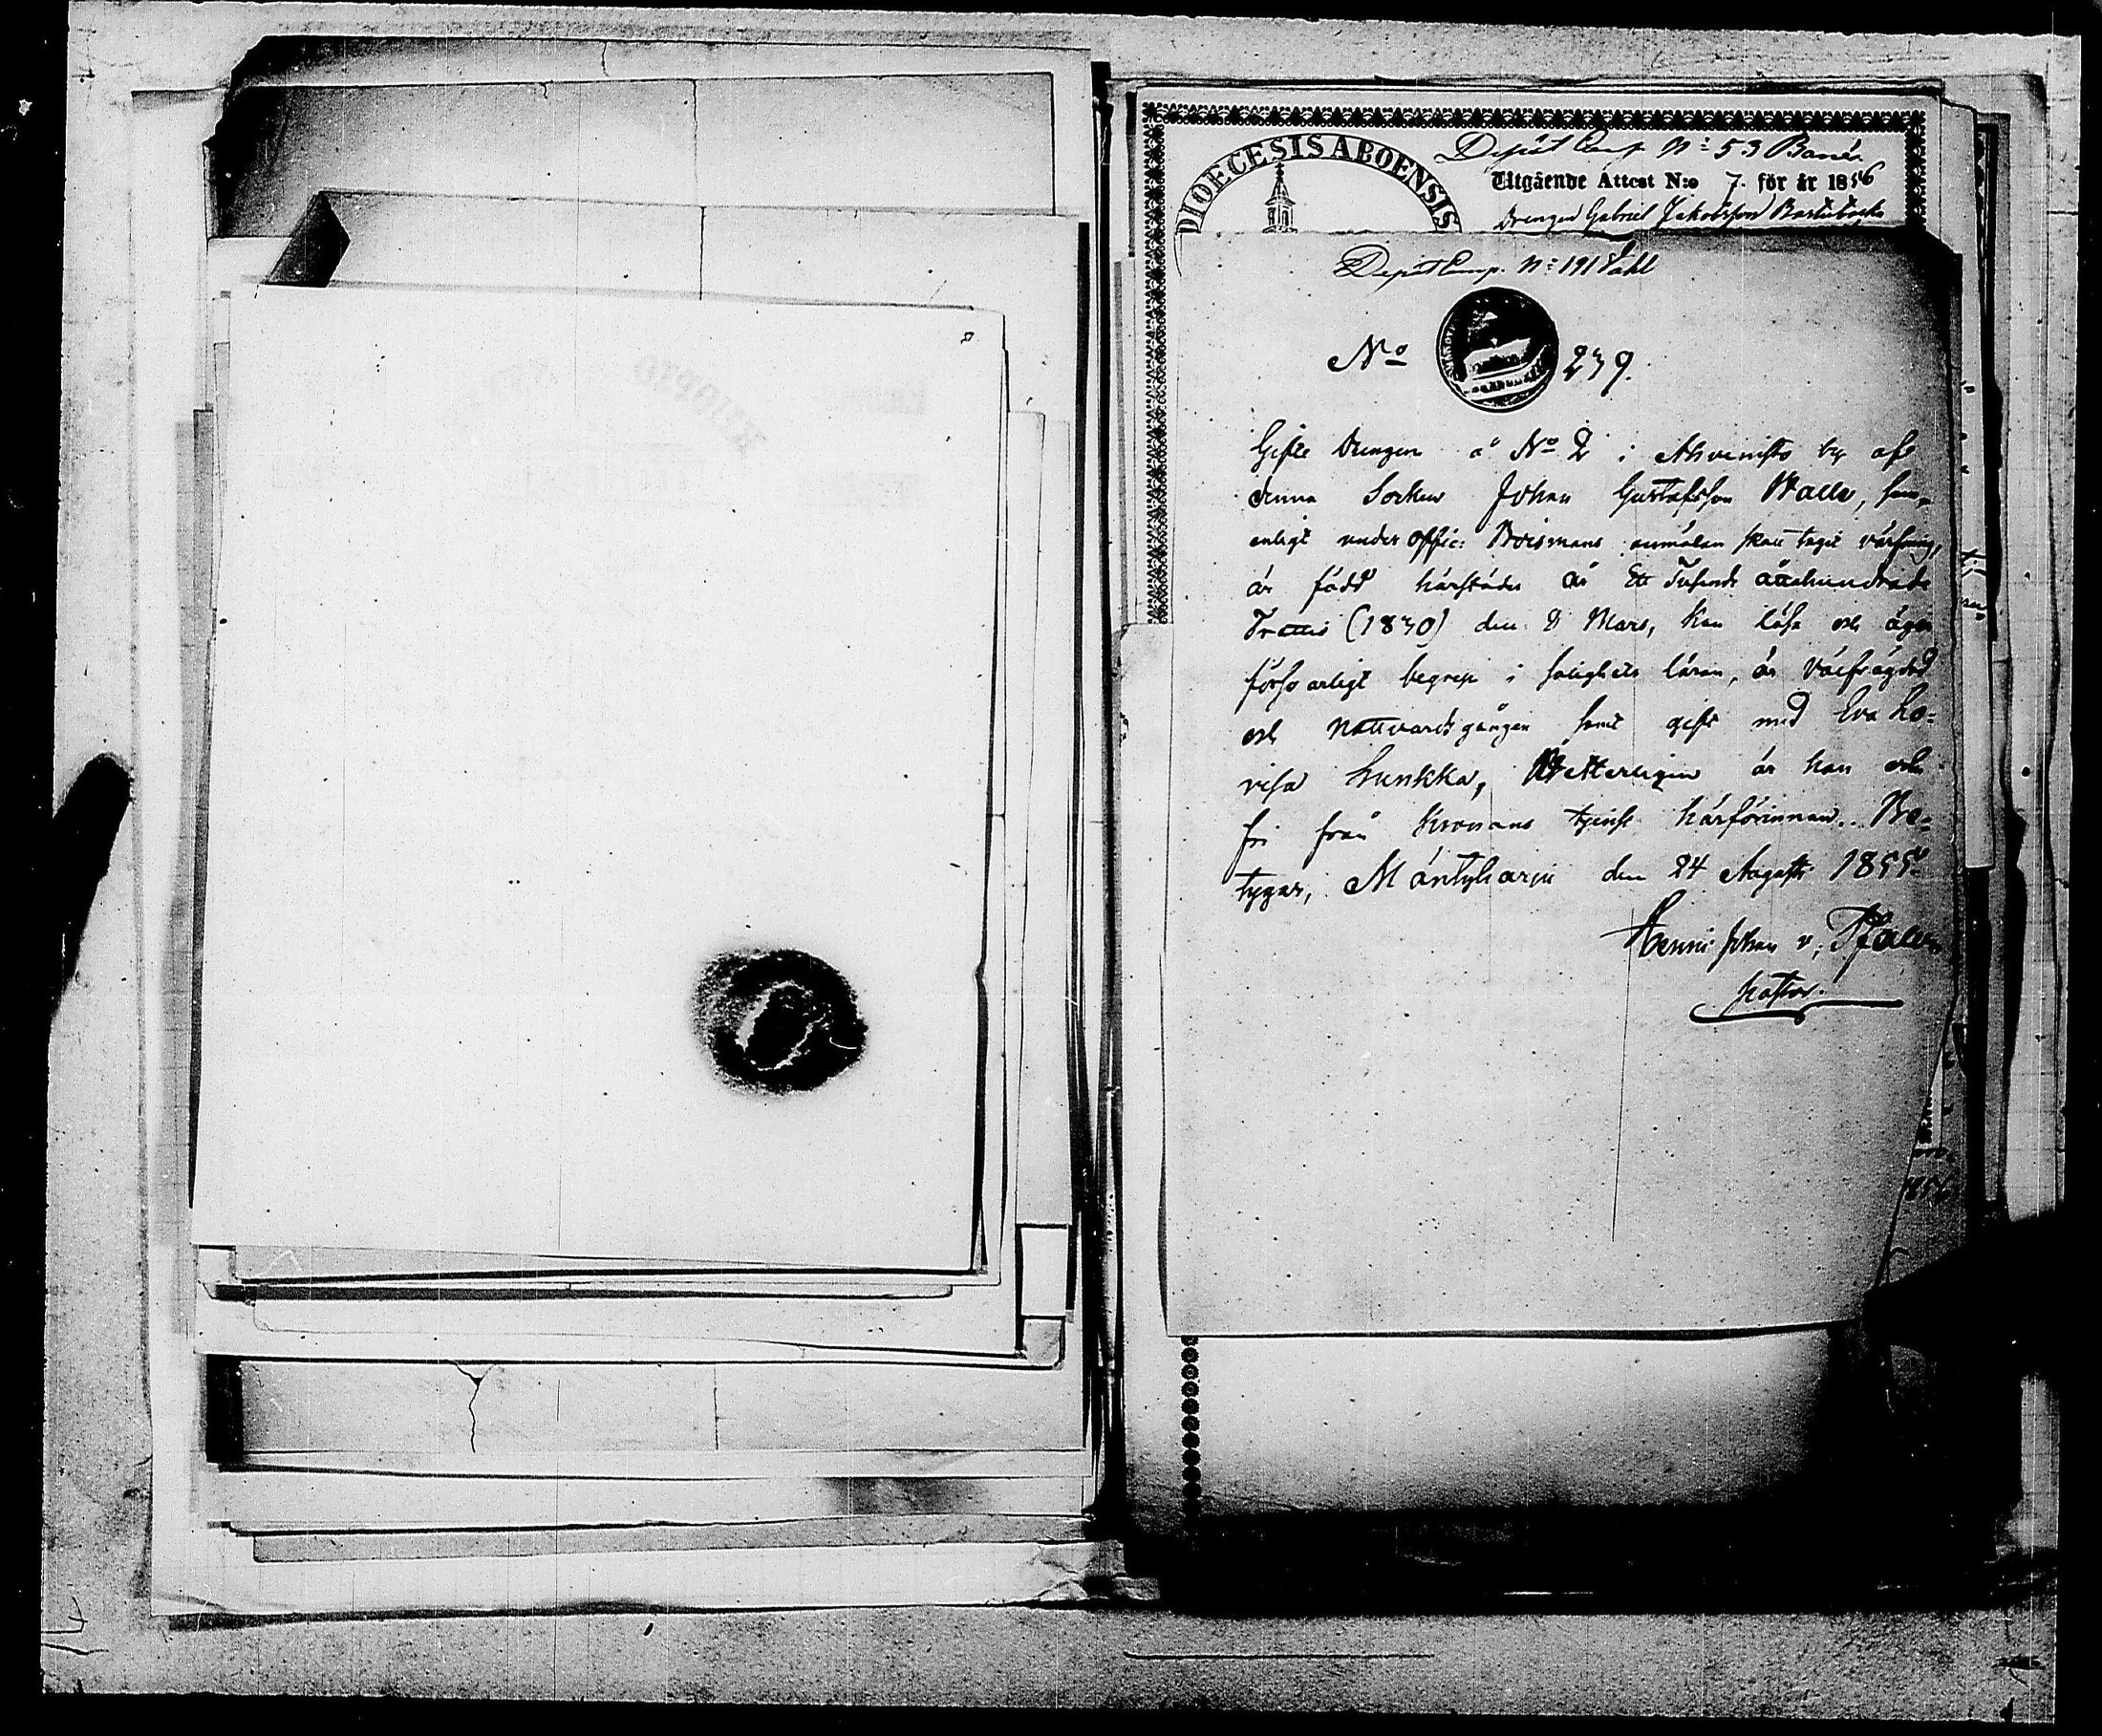 DIOECESIS ABOENSIS
Depôt Comp N:o 53 Banér
Utgående Attest N:o 7. för år 1856
Drengen Gabriel Jakobsson
Depôt Comp. N:o 191 Stahl
No 239.
Gifte Drengen å No 2 i Ahvenisto by af
denna Sorken Johan Gustafsson Walle, som
enligt under Offic: Boismans anmälan skall tagit värfning,
är född härstädes år Ett Tusende åttahundrade
Trettio (1830) den 8 Mars, kan läsa och äger
försvarligt begrep i salighets läran, är
och nattvardsgången samt gift med Eva Lo-
visa Lunkka, är han och
fri från Kronans tjenst härförinnan. Be-
tygar, Mäntyharju den 24 Augusti 1855.
Henric Johan v. Pfaler
Pastor.
1856